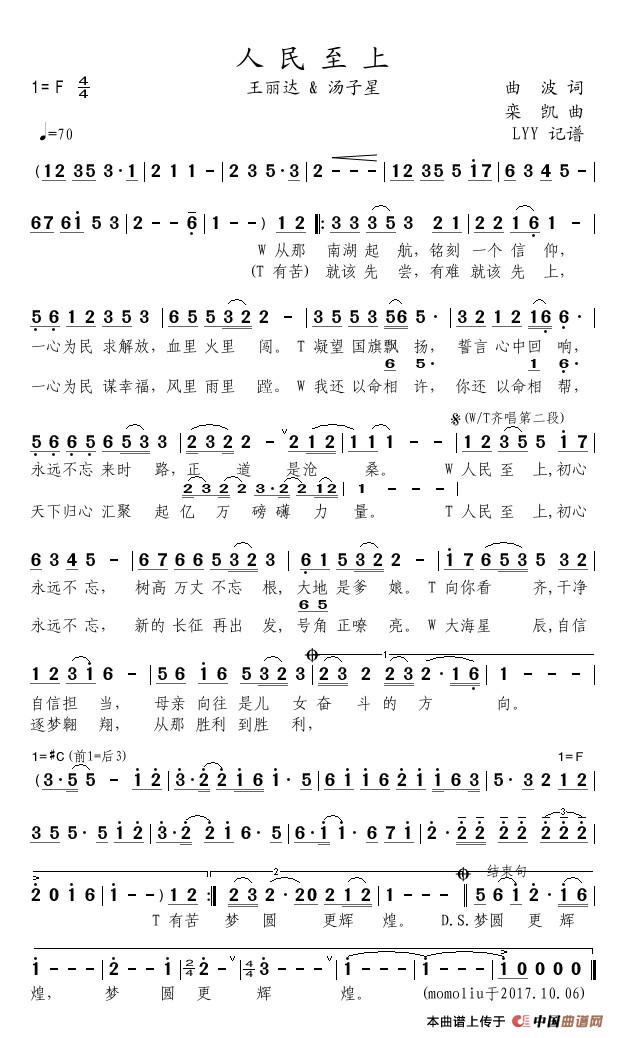 人民至上
1=F 4/4 王丽达 & 汤子星 曲 波 词
栾 凯 曲
♩=70 LYY 记谱
(12 35 3·1 | 2 1 1 - | 2 3 5·3 | 2 - - - | 12 35 5 17 | 63 4 5 - |
67 61 5 3 | 2 - - 6 | 1 - - ) 12 |: 33 35 3 21 | 22 16 1 - |
W 从那 南湖 起 航,铭刻 一个 信 仰,
(T 有苦) 就该 先 尝,有难 就该 先 上,
56 12 353 | 65 532 2 - | 35 53 56 5· | 35 12 16 6· |
一心为民 求解放,血里 火里 闯。T 凝望 国旗飘 扬, 誓言 心中回 响,
6 5· 1
一心为民 谋幸福,风里 雨里 蹚。W 我还 以命相 许, 你还 以命相 帮,
𝄋(W/T齐唱第二段)
56 62 6533 | 23 2 2 - ∨ 212 | 1 11 1 - | 12 35 5 17 |
永远不忘 来时 路,正 道 是沧 桑。 W 人民 至 上,初心
23 22 3·2 212 | 1 - - |
天下归心 汇聚 起 亿 万 磅礴 力 量。 T 人民 至 上,初心
63 4 5 - | 67 66 5323 | 61 532 2 - | 17 653 5 32 |
永远不 忘, 树高 万丈 不忘 根,大地 是爹 娘。T 向你看 齐,干净
65
永远不 忘, 新的 长征 再出 发,号角 正嘹 亮。W 大海星 辰,自信
12 31 6 - | 15 66 5323 | 23 23 2·16 | 1 - - - |
自信担 当, 母亲 向往 是儿 女奋 斗的 方 向。
逐梦翱 翔, 从那 胜利 到胜 利,
1=#C (前1=后3) 1=F
(3·5 5 - 12 | 3·2 21 61 5· | 61 16 21 163 | 5·3 21 2 |
35 5·5 12 | 3·2 21 5· | 61 1·6 71 | 2·22 22 222 |
结束句
2 0 1 6 | 1 - - ) 12 :| 23 2·20 212 | 1 - - - || 561 2·16 |
T 有苦 梦 圆 更辉 煌。 D.S.梦圆 更 辉
1 - - - | 2 - - 1 | 2/4 2 - ∨ | 4/4 3· - - ∨ | 1 - - - | 1 0 0 0 0 ||
煌, 梦 圆 更 辉 煌。 (momoliu于2017.10.06)
本曲谱上传于 中国曲谱网